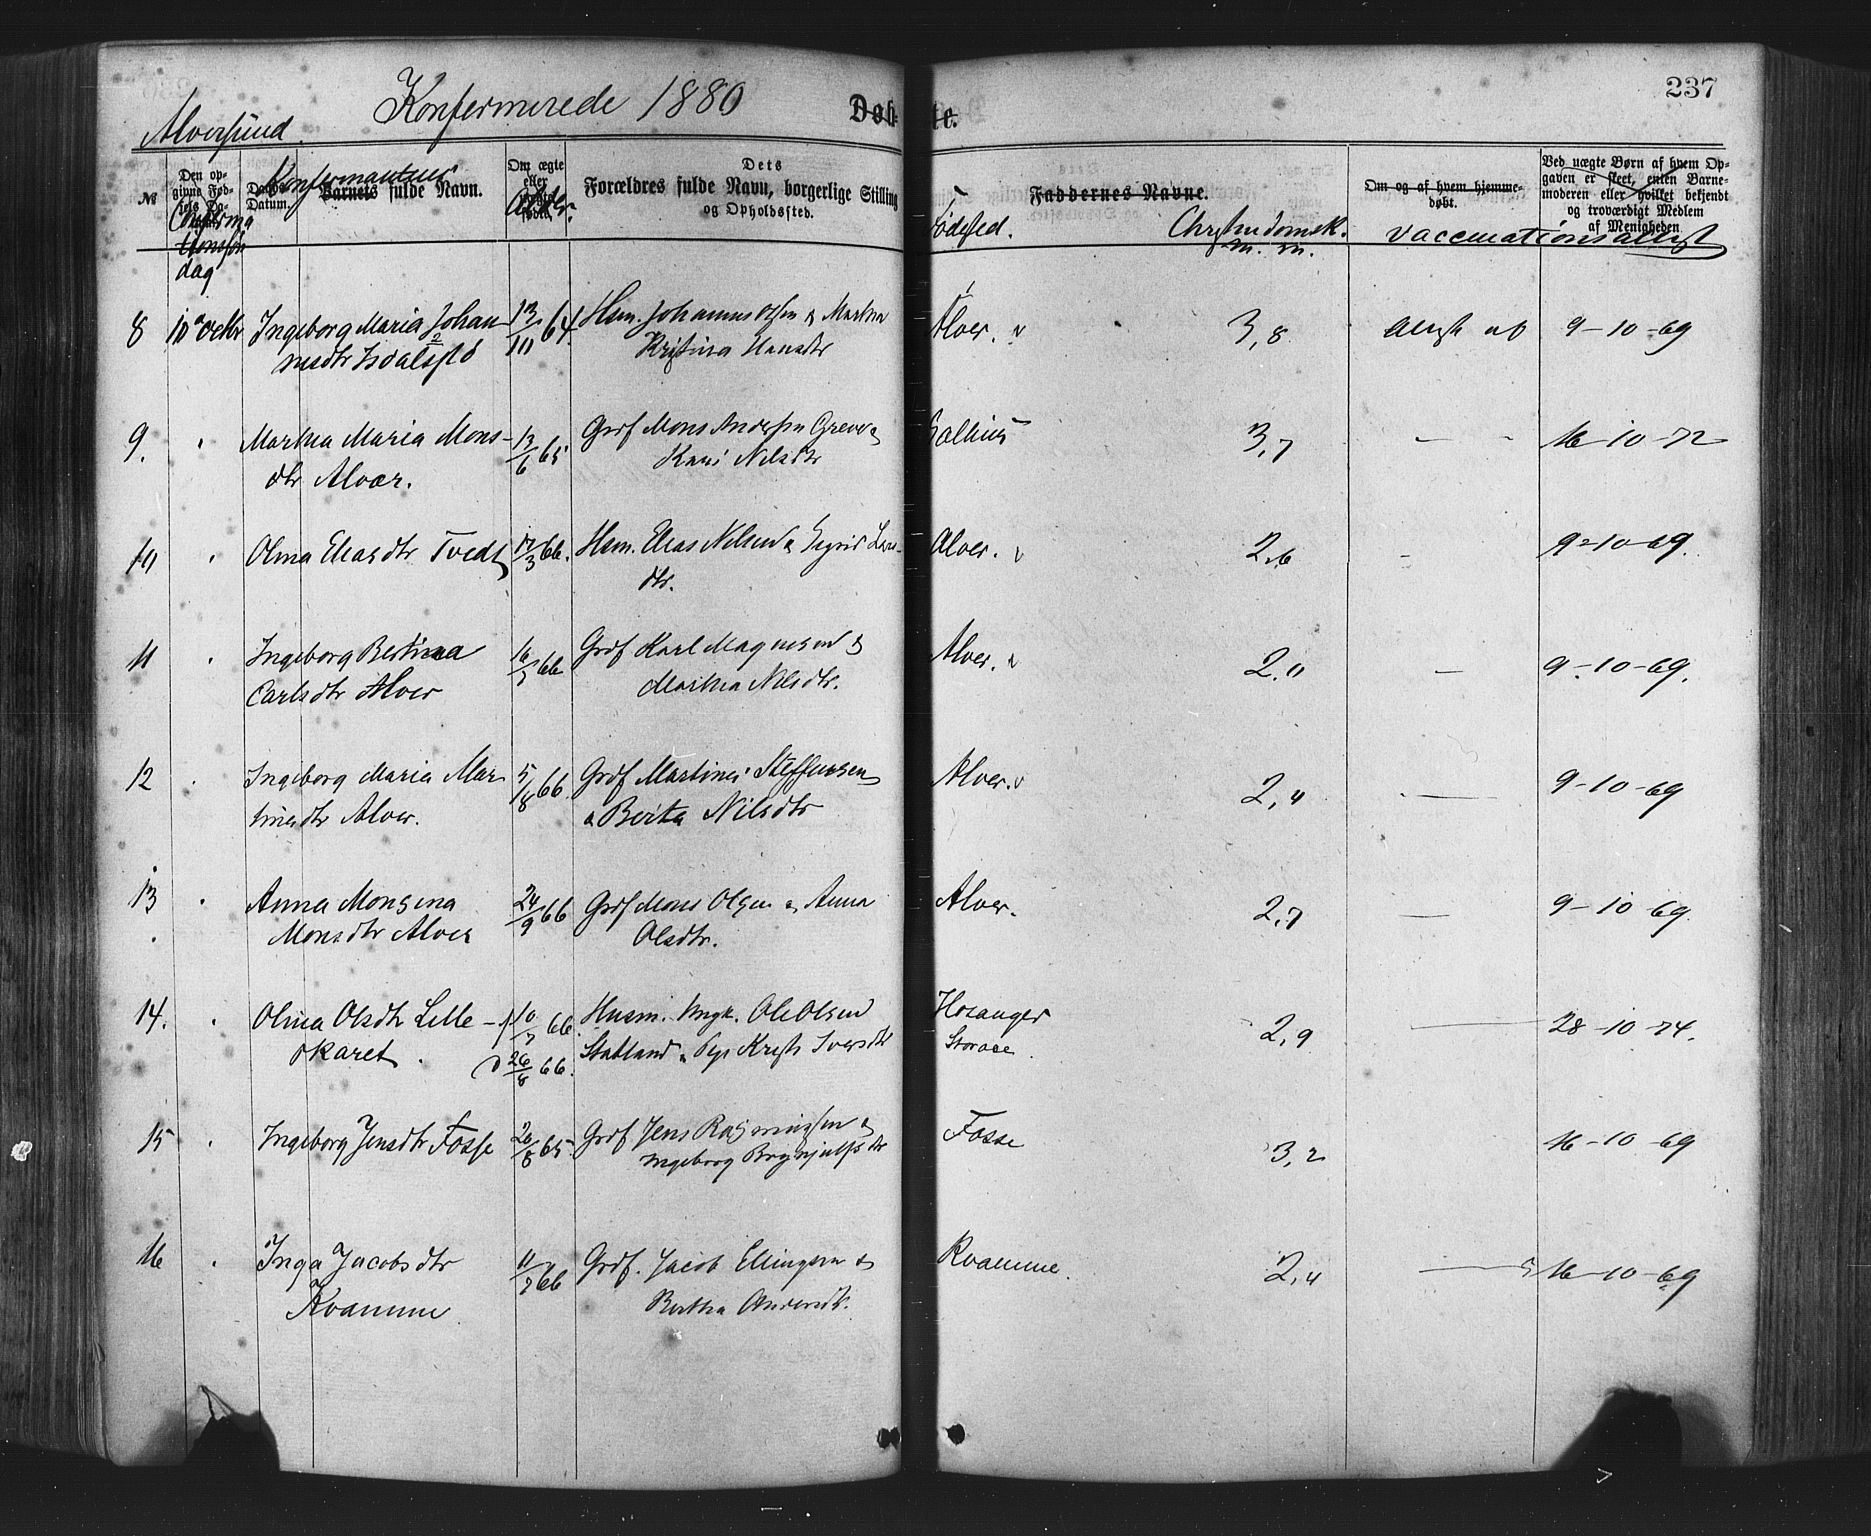 237
Konfermerede 1880
Døbte.
Alversund.
№
Den opgivne Fødsels Da-
Confirmationssøndag
Daabs-Datum.
Konfermantens
Barnets fulde Navn.
Om ægte eller
Alder.
Dets
Forældres fulde Navn, borgerlige Stilling
og Opholdssted.
Faddernes Navne.
Fødested.
Christendomsk. m. m.
Om og af hvem hjemmedøbt.
Ved uægte Børn af hvem Opgaven er skeet, enten Barnemoderen eller hvilket bekjendt og troværdigt Medlem af Menigheden
Vaccinationsattest
8 10 octbr Ingeborg Maria Johan- 13/10 64 Hsm. Johannes Olsen & Martha Alver. 3,8 Attest af 9-10-69
nesdtr Isdalstø Kristina Hansdtr
9. " Martha Maria Mons- 13/6 65 Grdf Mons Andersen Greve & 3,7 - " 16-10-72
dtr Alvær. Kari Nilsdtr
10 " Olina Eliasdtr Tvedt 17/3 66. Hsm. Elias Nilsen & Sigrid Lars- Alver. 2,6 - 9-10-69.
dtr.
11 " Ingeborg Bertina 66 Grdf Karl Magnesen & Alver. 2,0 - 9-10-69.
Carlsdtr Alver Martha Nilsdtr.
12 " Ingeborg Maria Mar- 5/8 66 Grdf Martines Steffensen Alver. 2,4 - 9-10-69
tinesdtr Alver. & Berta Nilsdtr
13 " Anna Monsina 24/9 66 Grdf Mons Olsen & Anna Alver. 2,7 - 9-10-69.
Monsdtr Alver Olsdtr.
14. " Olina Olsdtr Lille- f 10/7 66 Husm. Ungk. Ole Olsen Hosanger 2,9 - 28-10-74.
skaret. d 26/8 66. Statland & Pige Iversdtr
15 " Ingeborg Jensdtr Fosse 26/8 65. Grdf Jens Rasmussen & Fosse 3,2 16-10-69
Ingeborg Brynjulfsdtr
16 " Inga Jacobsdtr 11/7 66 Grdf. Jacob Ellingsen & Kvamme. 2,4 - 16-10-69
Kvamme. Bertha Andersdtr.